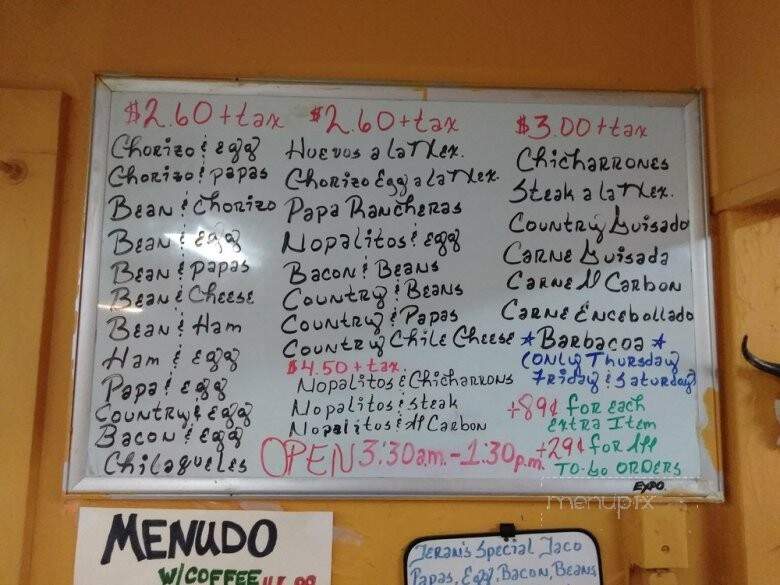 $2.60 + tax
Chorizo & egg
Chorizo & papas
Bean & Chorizo
Bean & egg
Bean & papas
Bean & Cheese
Bean & Ham
Ham & egg
Papa & egg
Country & egg
Bacon & egg
Chilaqueles
$2.60 + tax
Huevos a la Mex.
Chorizo Egg a la Mex.
Papa Rancheras
Nopalitos & egg
Bacon & Beans
Country & Beans
Country & Papas
Country Chile Cheese
$4.50 + tax
Nopalitos & Chicharrons
Nopalitos & Steak
Nopalitos & Al Carbon
$3.00 + tax
Chicharrones
Steak a la Mex.
Country Guisado
Carne Guisada
Carne Al Carbon
Carne Encebollado
*Barbacoa*
(Only Thursday
Friday & Saturday)
+89¢ for each
extra Item
+29¢ for All
To-Go ORDERS
OPEN 3:30a.m. - 1:30p.m.
EXPO
menupix
MENUDO
W/COFFEE
Teran's Special Taco
Papas, Egg, Bacon, Beans